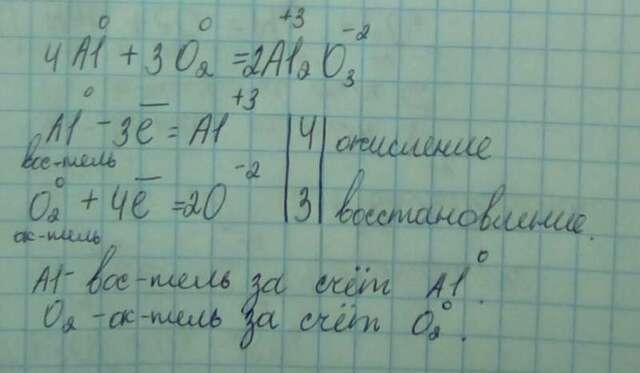 4Al⁰ + 3O₂⁰ = 2Al₂⁺³O₃⁻²
Al⁰ - 3e̅ = Al⁺³ | 4 | окисление
вос-тель
O₂⁰ + 4e̅ = 2O⁻² | 3 | восстановление.
ок-тель
Al - вос-тель за счёт Al⁰.
O₂ - ок-тель за счёт O₂⁰.